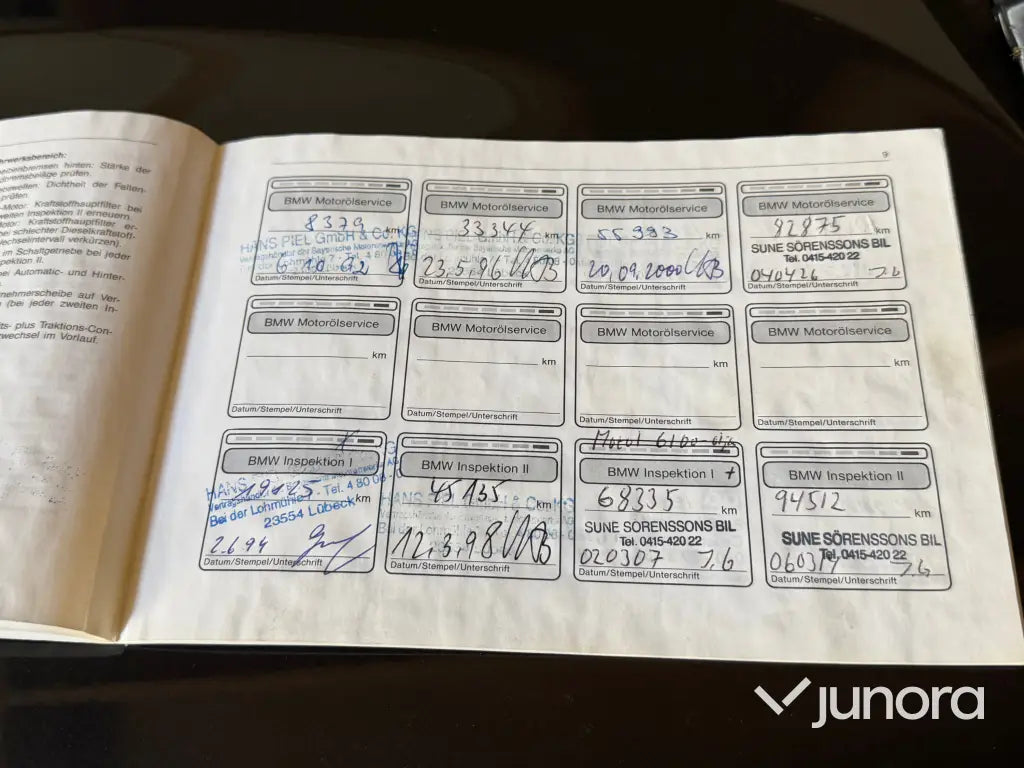 hrwerksbereich:
Stärke der
prüfen.
Dichtheit der Falten-
prüfen.
Motor: Kraftstoffhauptfilter bei
Inspektion II erneuern.
Kraftstoffhauptfilter er-
bei schlechter Dieselkraftstoff-
Wechselintervall verkürzen).
im Schaltgetriebe bei jeder
pektion II.
bei Automatic- und Hinter-
nehmerscheibe auf Ver-
(bei jeder zweiten In-
plus Traktions-Con-
wechsel im Vorlauf.
9
BMW Motorölservice
8379 km
HANS PIEL GmbH & Co. KG
6.10.92
Datum/Stempel/Unterschrift
BMW Motorölservice
33344 km
23.5.96
Datum/Stempel/Unterschrift
BMW Motorölservice
55993 km
20.09.2000
Datum/Stempel/Unterschrift
BMW Motorölservice
82875 km
SUNE SÖRENSSONS BIL
Tel. 0415-420 22
040426 J.G
Datum/Stempel/Unterschrift
BMW Motorölservice
km
Datum/Stempel/Unterschrift
BMW Motorölservice
km
Datum/Stempel/Unterschrift
BMW Motorölservice
km
Datum/Stempel/Unterschrift
BMW Motorölservice
km
Datum/Stempel/Unterschrift
BMW Inspektion I
km
HANS
Bei der Lohmühle 7 - Tel. 4 80 06-0
23554 Lübeck
2.6.94
Datum/Stempel/Unterschrift
BMW Inspektion II
45135 km
12.3.98
Datum/Stempel/Unterschrift
Motul 6100
BMW Inspektion I +
68335 km
SUNE SÖRENSSONS BIL
Tel. 0415-420 22
020307 J.G
Datum/Stempel/Unterschrift
BMW Inspektion II
94512 km
SUNE SÖRENSSONS BIL
Tel. 0415-420 22
J.G
Datum/Stempel/Unterschrift
junora